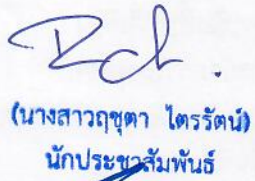 (นางสาวฤชุตา ไตรรัตน์)
นักประชาสัมพันธ์